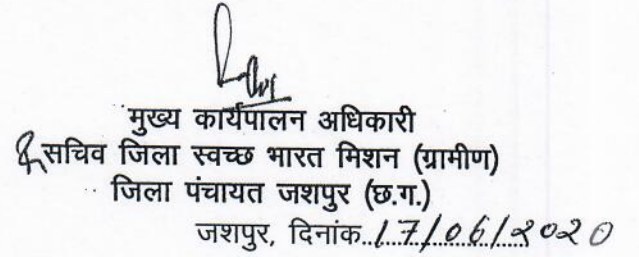 मुख्य कार्यपालन अधिकारी
सचिव जिला स्वच्छ भारत मिशन (ग्रामीण)
जिला पंचायत जशपुर (छ.ग.)
जशपुर, दिनांक..17/06/2020